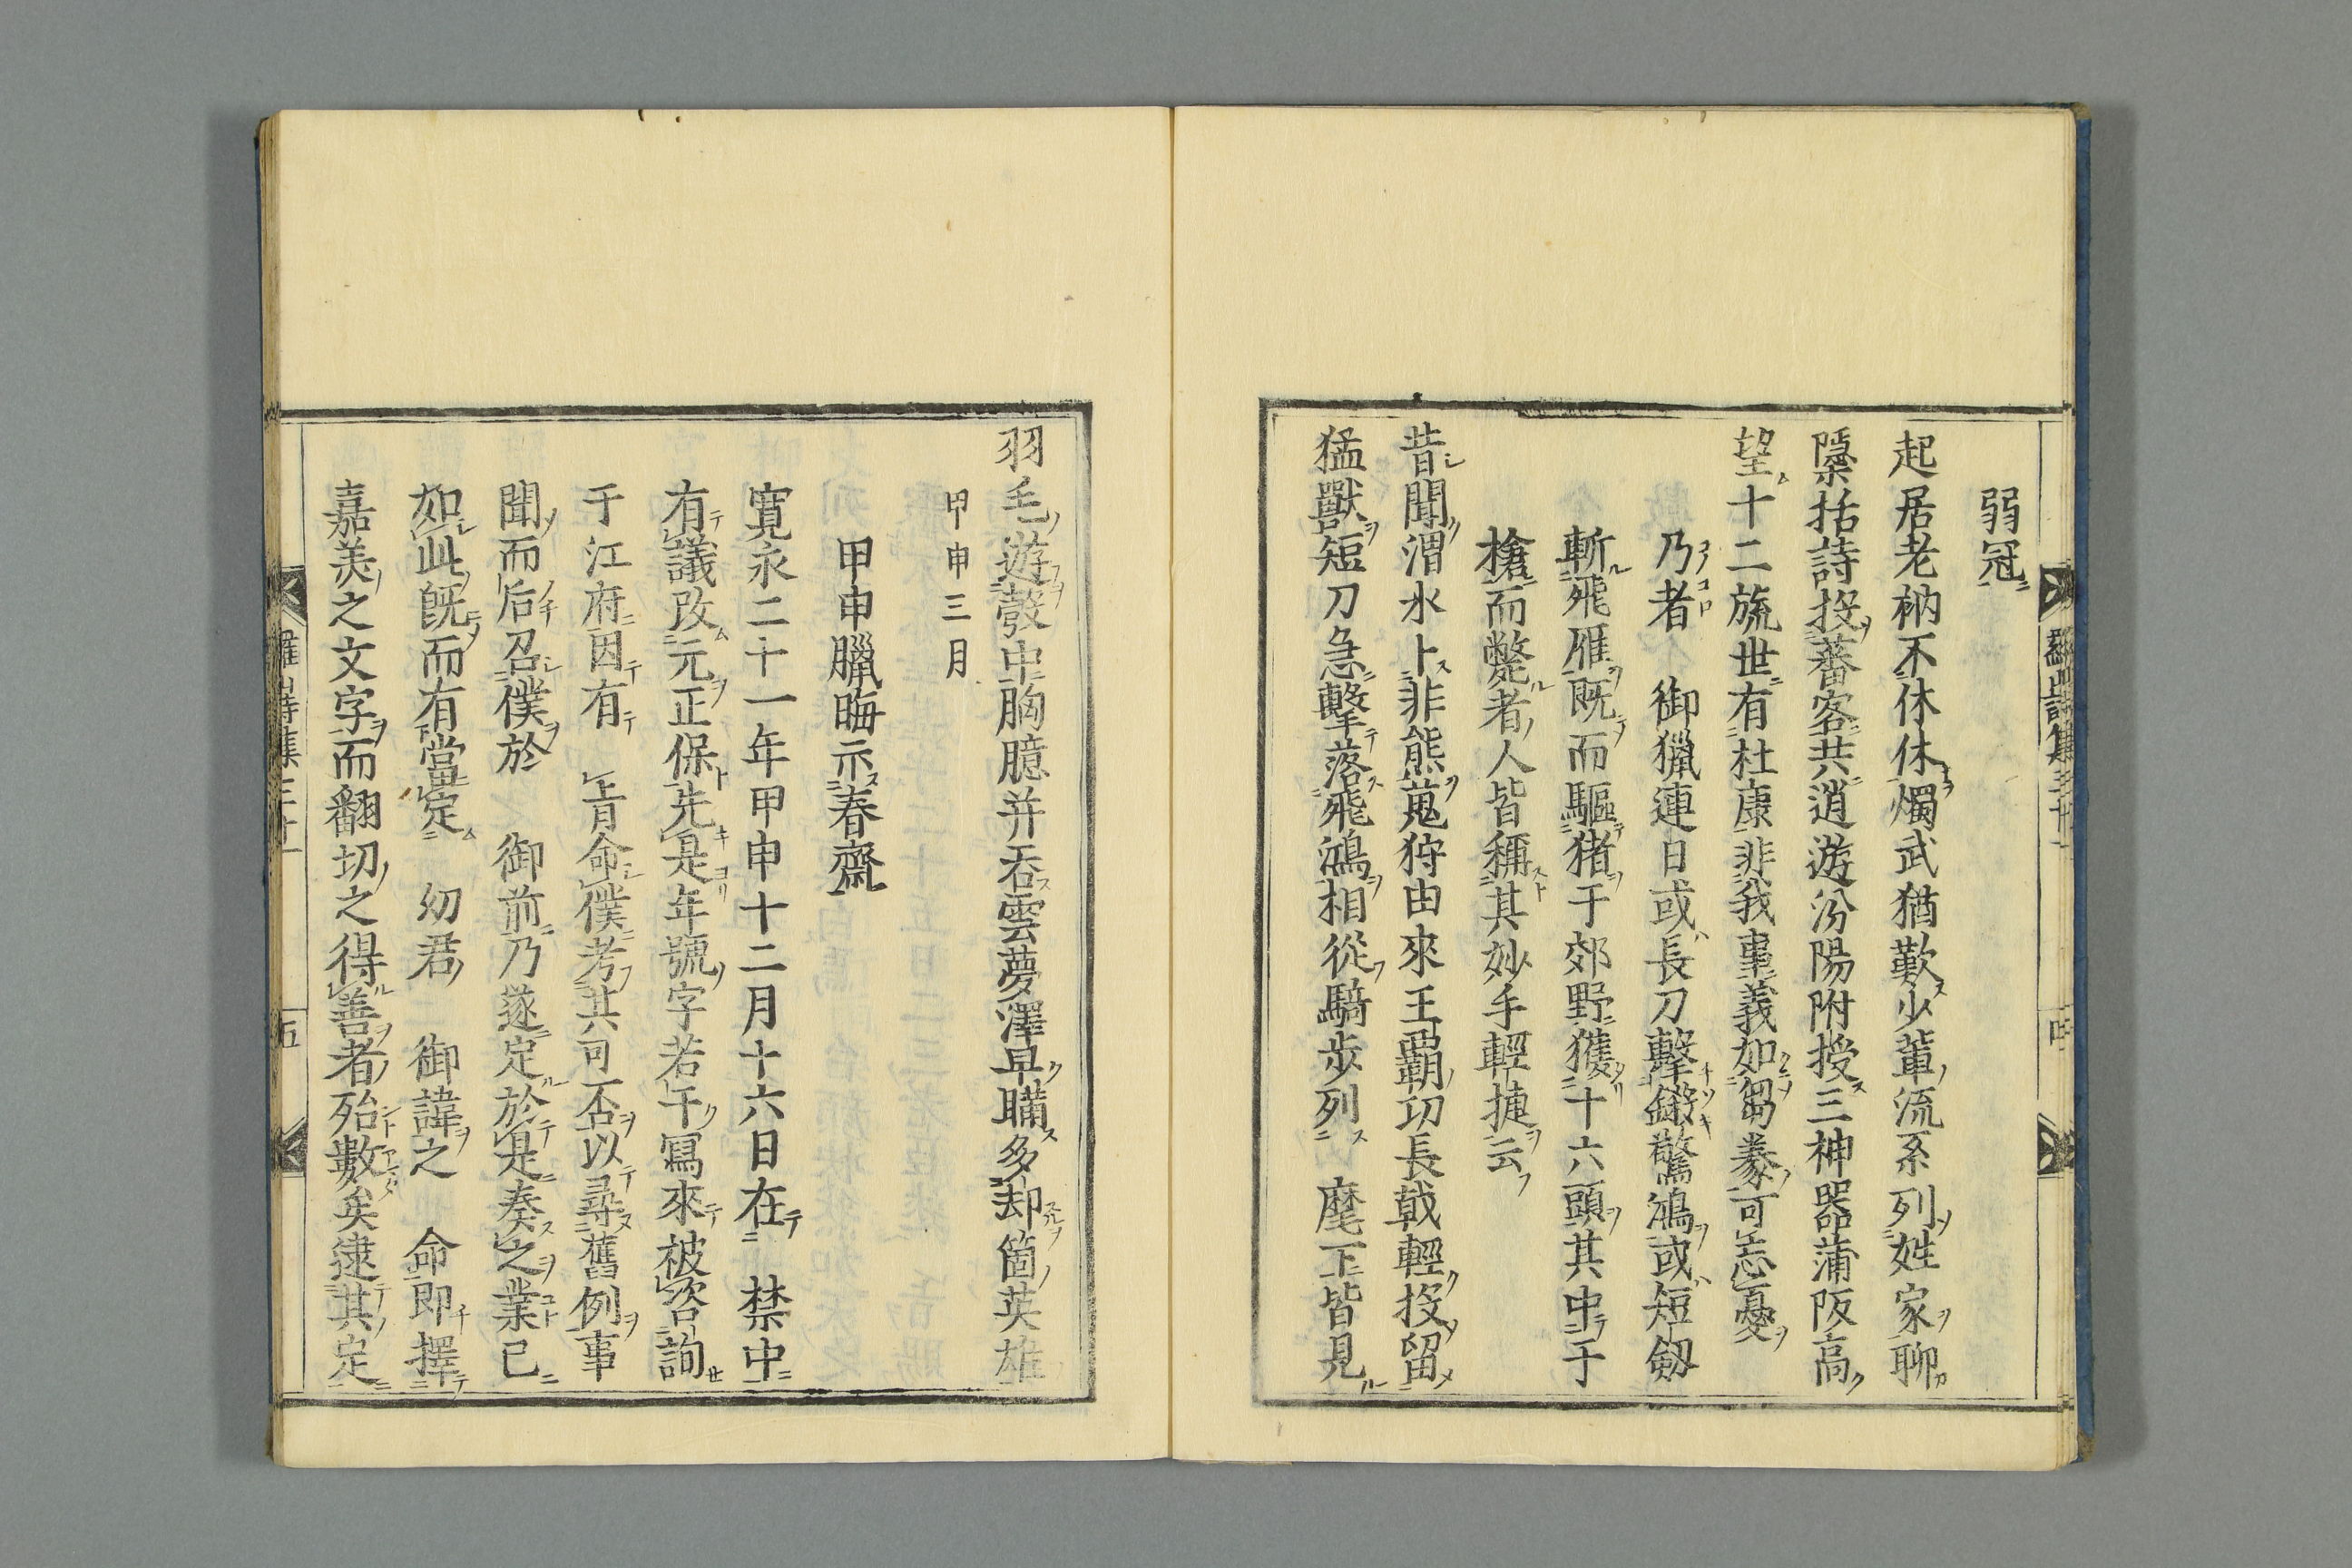 弱冠
起居老衲不休休燭武猶歎少輩流系列姓家聊
隱括詩投蕃客共逍遊汾陽附授三神器蒲阪高
望十二旒世有杜康非我事義如芻豢可忘憂
乃者　御獵連日或長刀擊鏾驚鴻或短劔
斬飛雁既而驅猪于郊野獲十六頭其中于
槍而斃者人皆稱其妙手輕捷云
昔聞渭水卜非熊蒐狩由來王覇功長戟輕投留
猛獸短刀急擊落飛鴻相從騎步列　麾下皆見
羽毛遊彀中胸臆并呑雲夢澤早購多却箇英雄
甲申三月
甲申臘晦示春齋
寛永二十一年甲申十二月十六日在　禁中
有議改元正保先是年號字若干寫來被咨詢
于江府因有　旨命僕考其可否以尋舊例事
聞而后召僕於　御前乃遂定於是奏之業已
如此既而有當定　幼君　御諱之　命即擇
嘉美之文字而翻切之得善者殆數矣逮其定
羅山詩集三十一
五